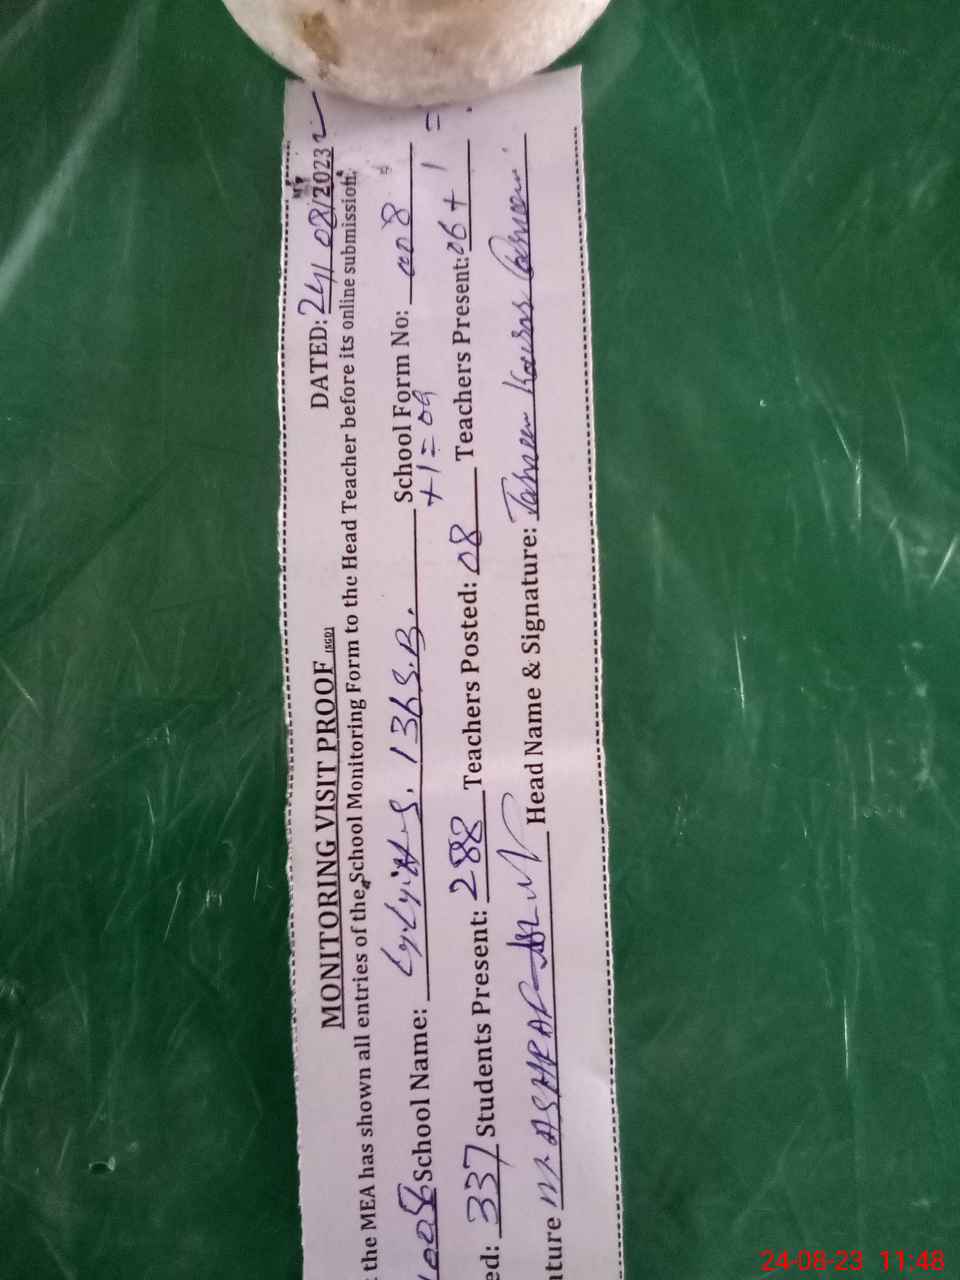 MONITORING VISIT PROOF (SGD) DATED: 24/08/2023
the MEA has shown all entries of the School Monitoring Form to the Head Teacher before its online submission.
School Name: 136 S.B. School Form No: 008
+1=09
ed: 337 Students Present: 288 Teachers Posted: 08 Teachers Present: 06+1=
ature M. ASHRAF Head Name & Signature:
24-08-23 11:48